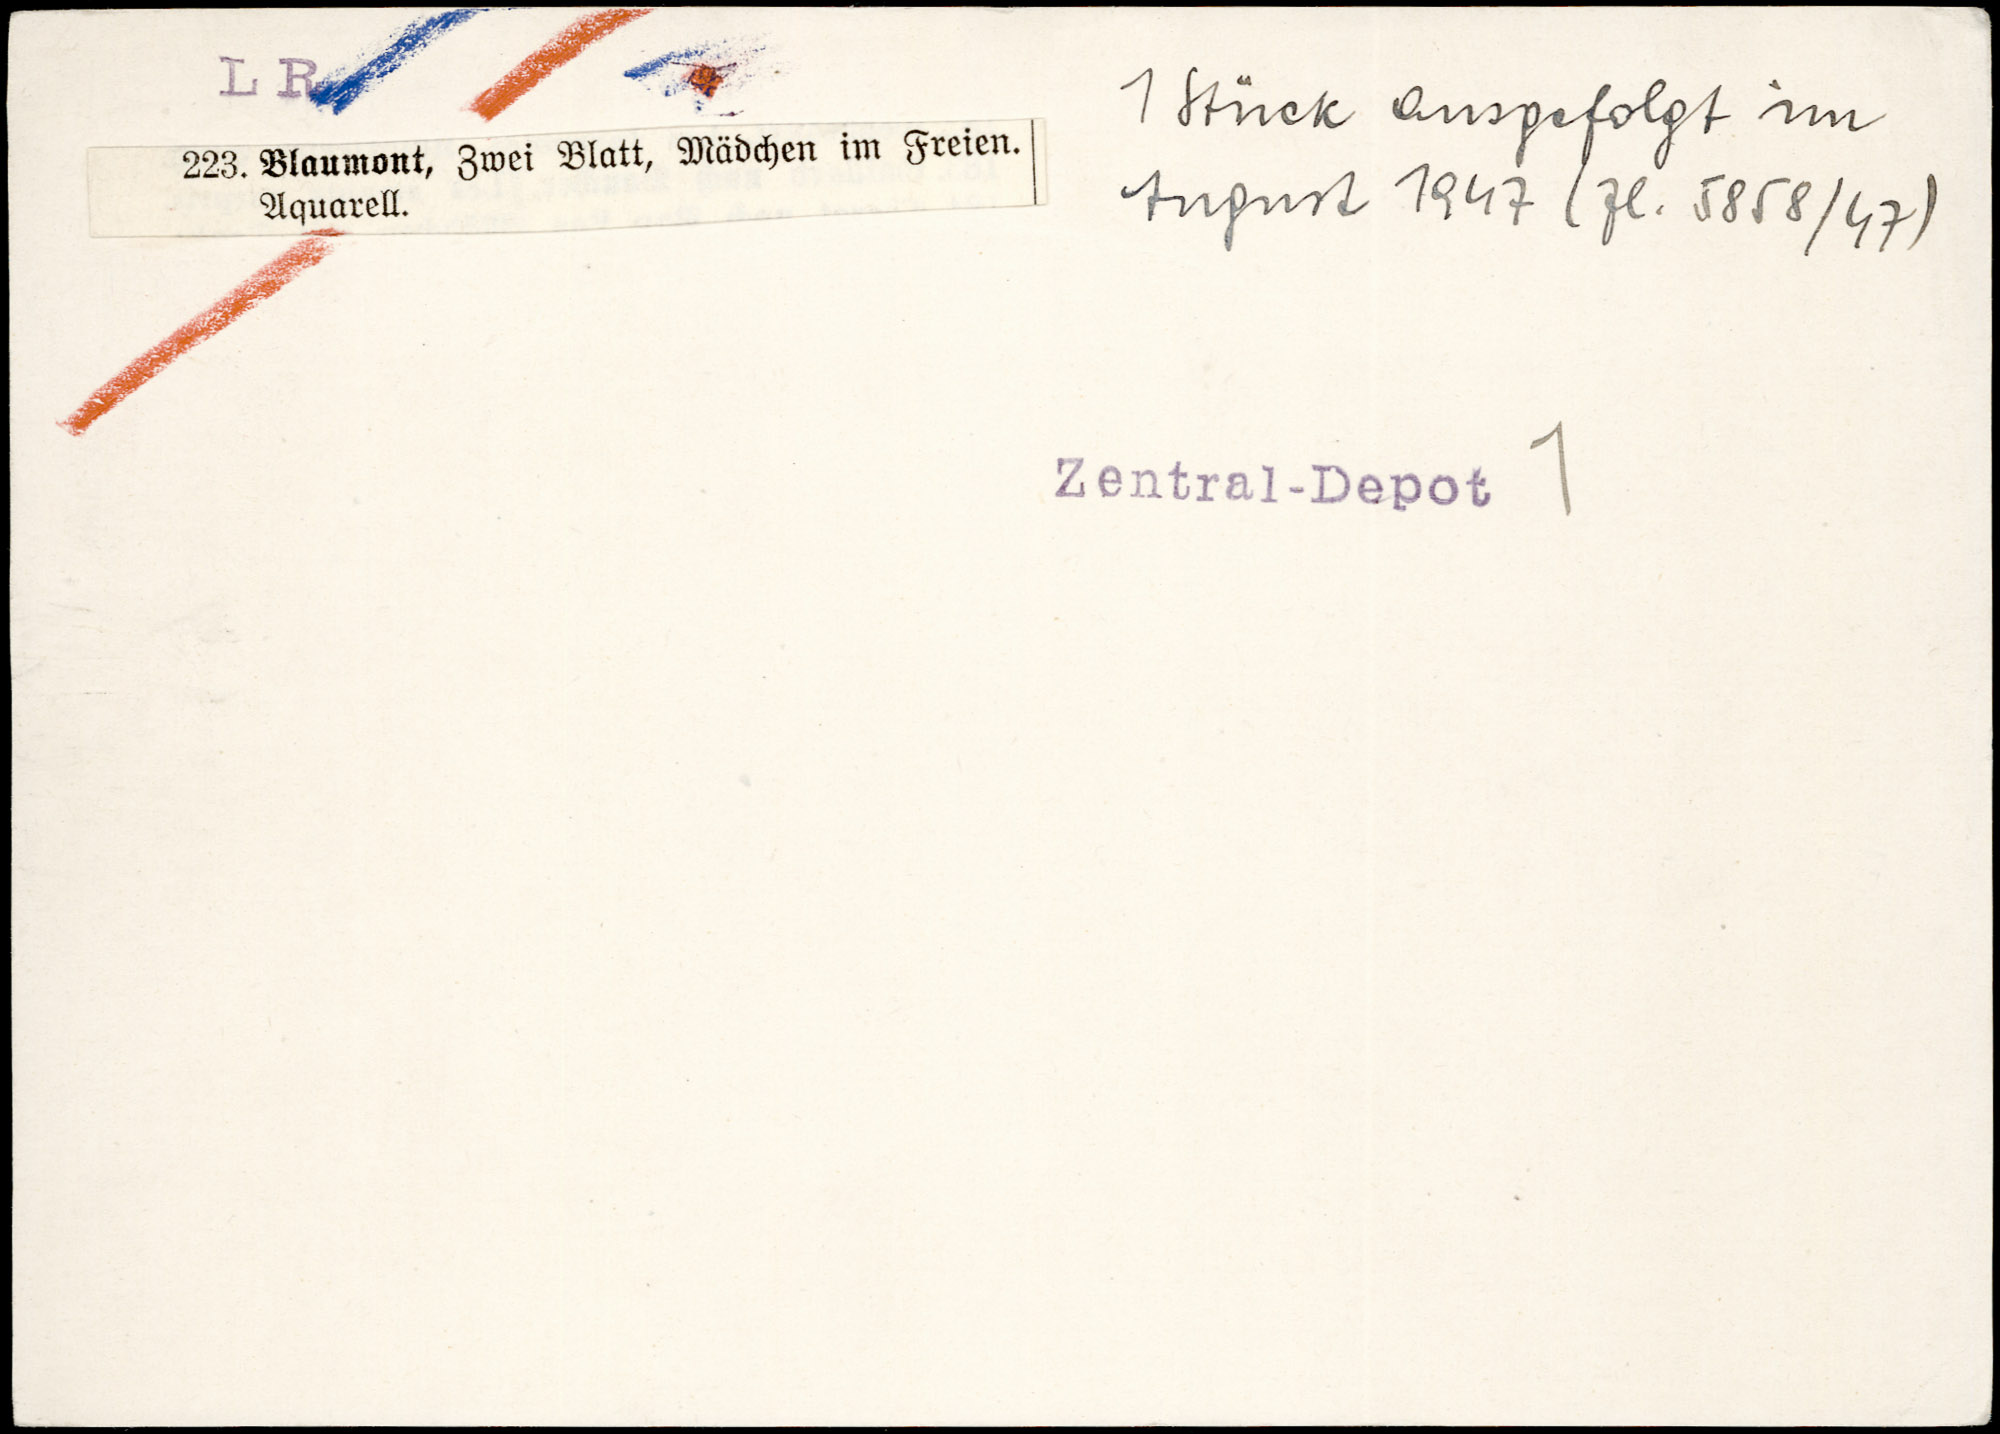 L R
223. Blaumont, Zwei Blatt, Mädchen im Freien.
Aquarell.
1 Stück ausgefolgt im
August 1947 (Zl. 5858/47)
Zentral-Depot 1